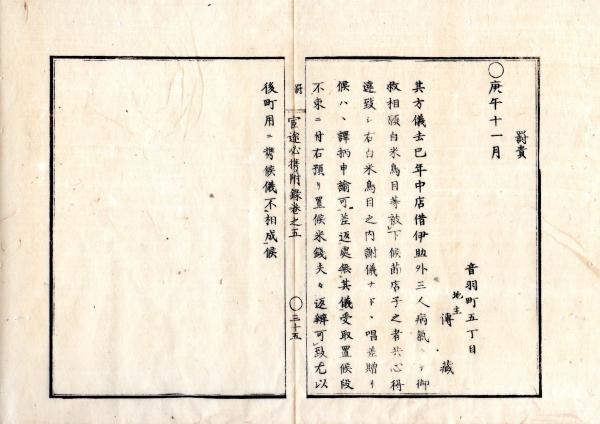 罰責
○庚午十一月
音羽町五丁目
地主
傳藏
其方儀去巳年中店借伊助外三人病氣ニテ御
救相願白米鳥目等被下候節店子之者共心得
違致シ右白米鳥目之内謝儀ナド、唱差贈リ
候ハ、譯柄申諭可差返處無其儀受取置候段
不束ニ付右預リ置候米錢夫々返辨可致尤以
罰
官途必携附錄卷之五
○三十五
後町用ニ携候儀不相成候